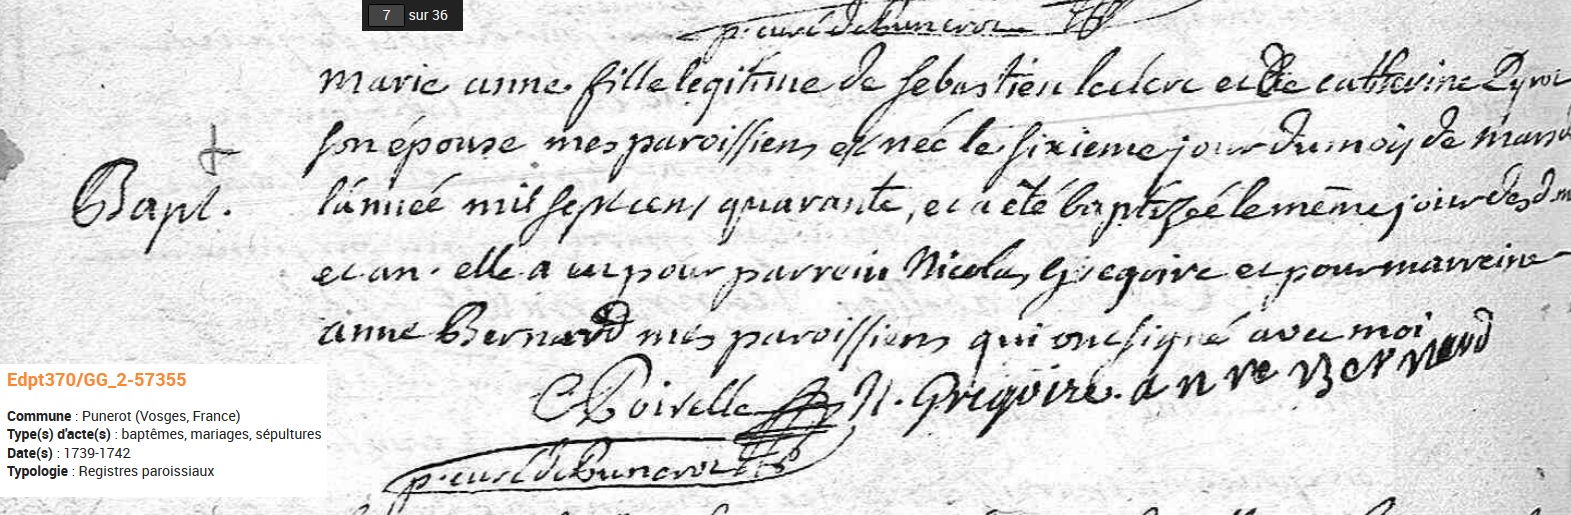 7 sur 36
p. curé de Punerot
marie anne fille legitime de sebastien leclerc et de catherine
son épouse mes paroissiens est née le sixieme jour du mois de mars
l'année mil sept cens quarante, et a été baptizée le même jour des
et an. elle a eu pour parrein Nicolas Gregoire et pour marreine
Bapt.
anne Bernard mes paroissiens qui ont signé avec moi
C Poirelle N. Grigoire. anne Bernard
p. curé de Punerot
Edpt370/GG_2-57355
Commune : Punerot (Vosges, France)
Type(s) d'acte(s) : baptêmes, mariages, sépultures
Date(s) : 1739-1742
Typologie : Registres paroissiaux